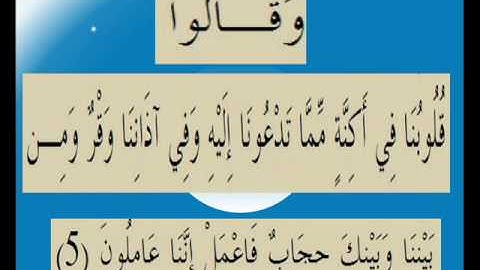 وَقَـــالُوا
قُلُوبُنَا فِي أَكِنَّةٍ مِّمَّا تَدْعُونَا إِلَيْهِ وَفِي آذَانِنَا وَقْرٌ وَمِــن
بَيْنِنَا وَبَيْنِكَ حِجَابٌ فَاعْمَلْ إِنَّنَا عَامِلُونَ (5)